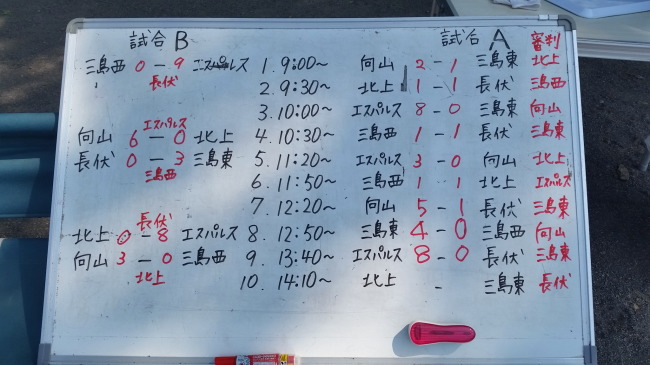 試合 B 試合 A 審判
三島西 0 - 9 エスパルス 1. 9:00~ 向山 2 - 1 三島東 北上
長伏 2. 9:30~ 北上 1 - 1 長伏 三島西
3. 10:00~ エスパルス 8 - 0 三島東 向山
エスパルス
向山 6 - 0 北上 4. 10:30~ 三島西 1 - 1 長伏 三島東
長伏 0 - 3 三島東 5. 11:20~ エスパルス 3 - 0 向山 北上
三島西 6. 11:50~ 三島西 1 1 北上 エスパルス
7. 12:20~ 向山 5 - 1 長伏 三島東
長伏
北上 0 - 8 エスパルス 8. 12:50~ 三島東 4 - 0 三島西 向山
向山 3 - 0 三島西 9. 13:40~ エスパルス 8 - 0 長伏 三島東
北上 10. 14:10~ 北上 - 三島東 長伏